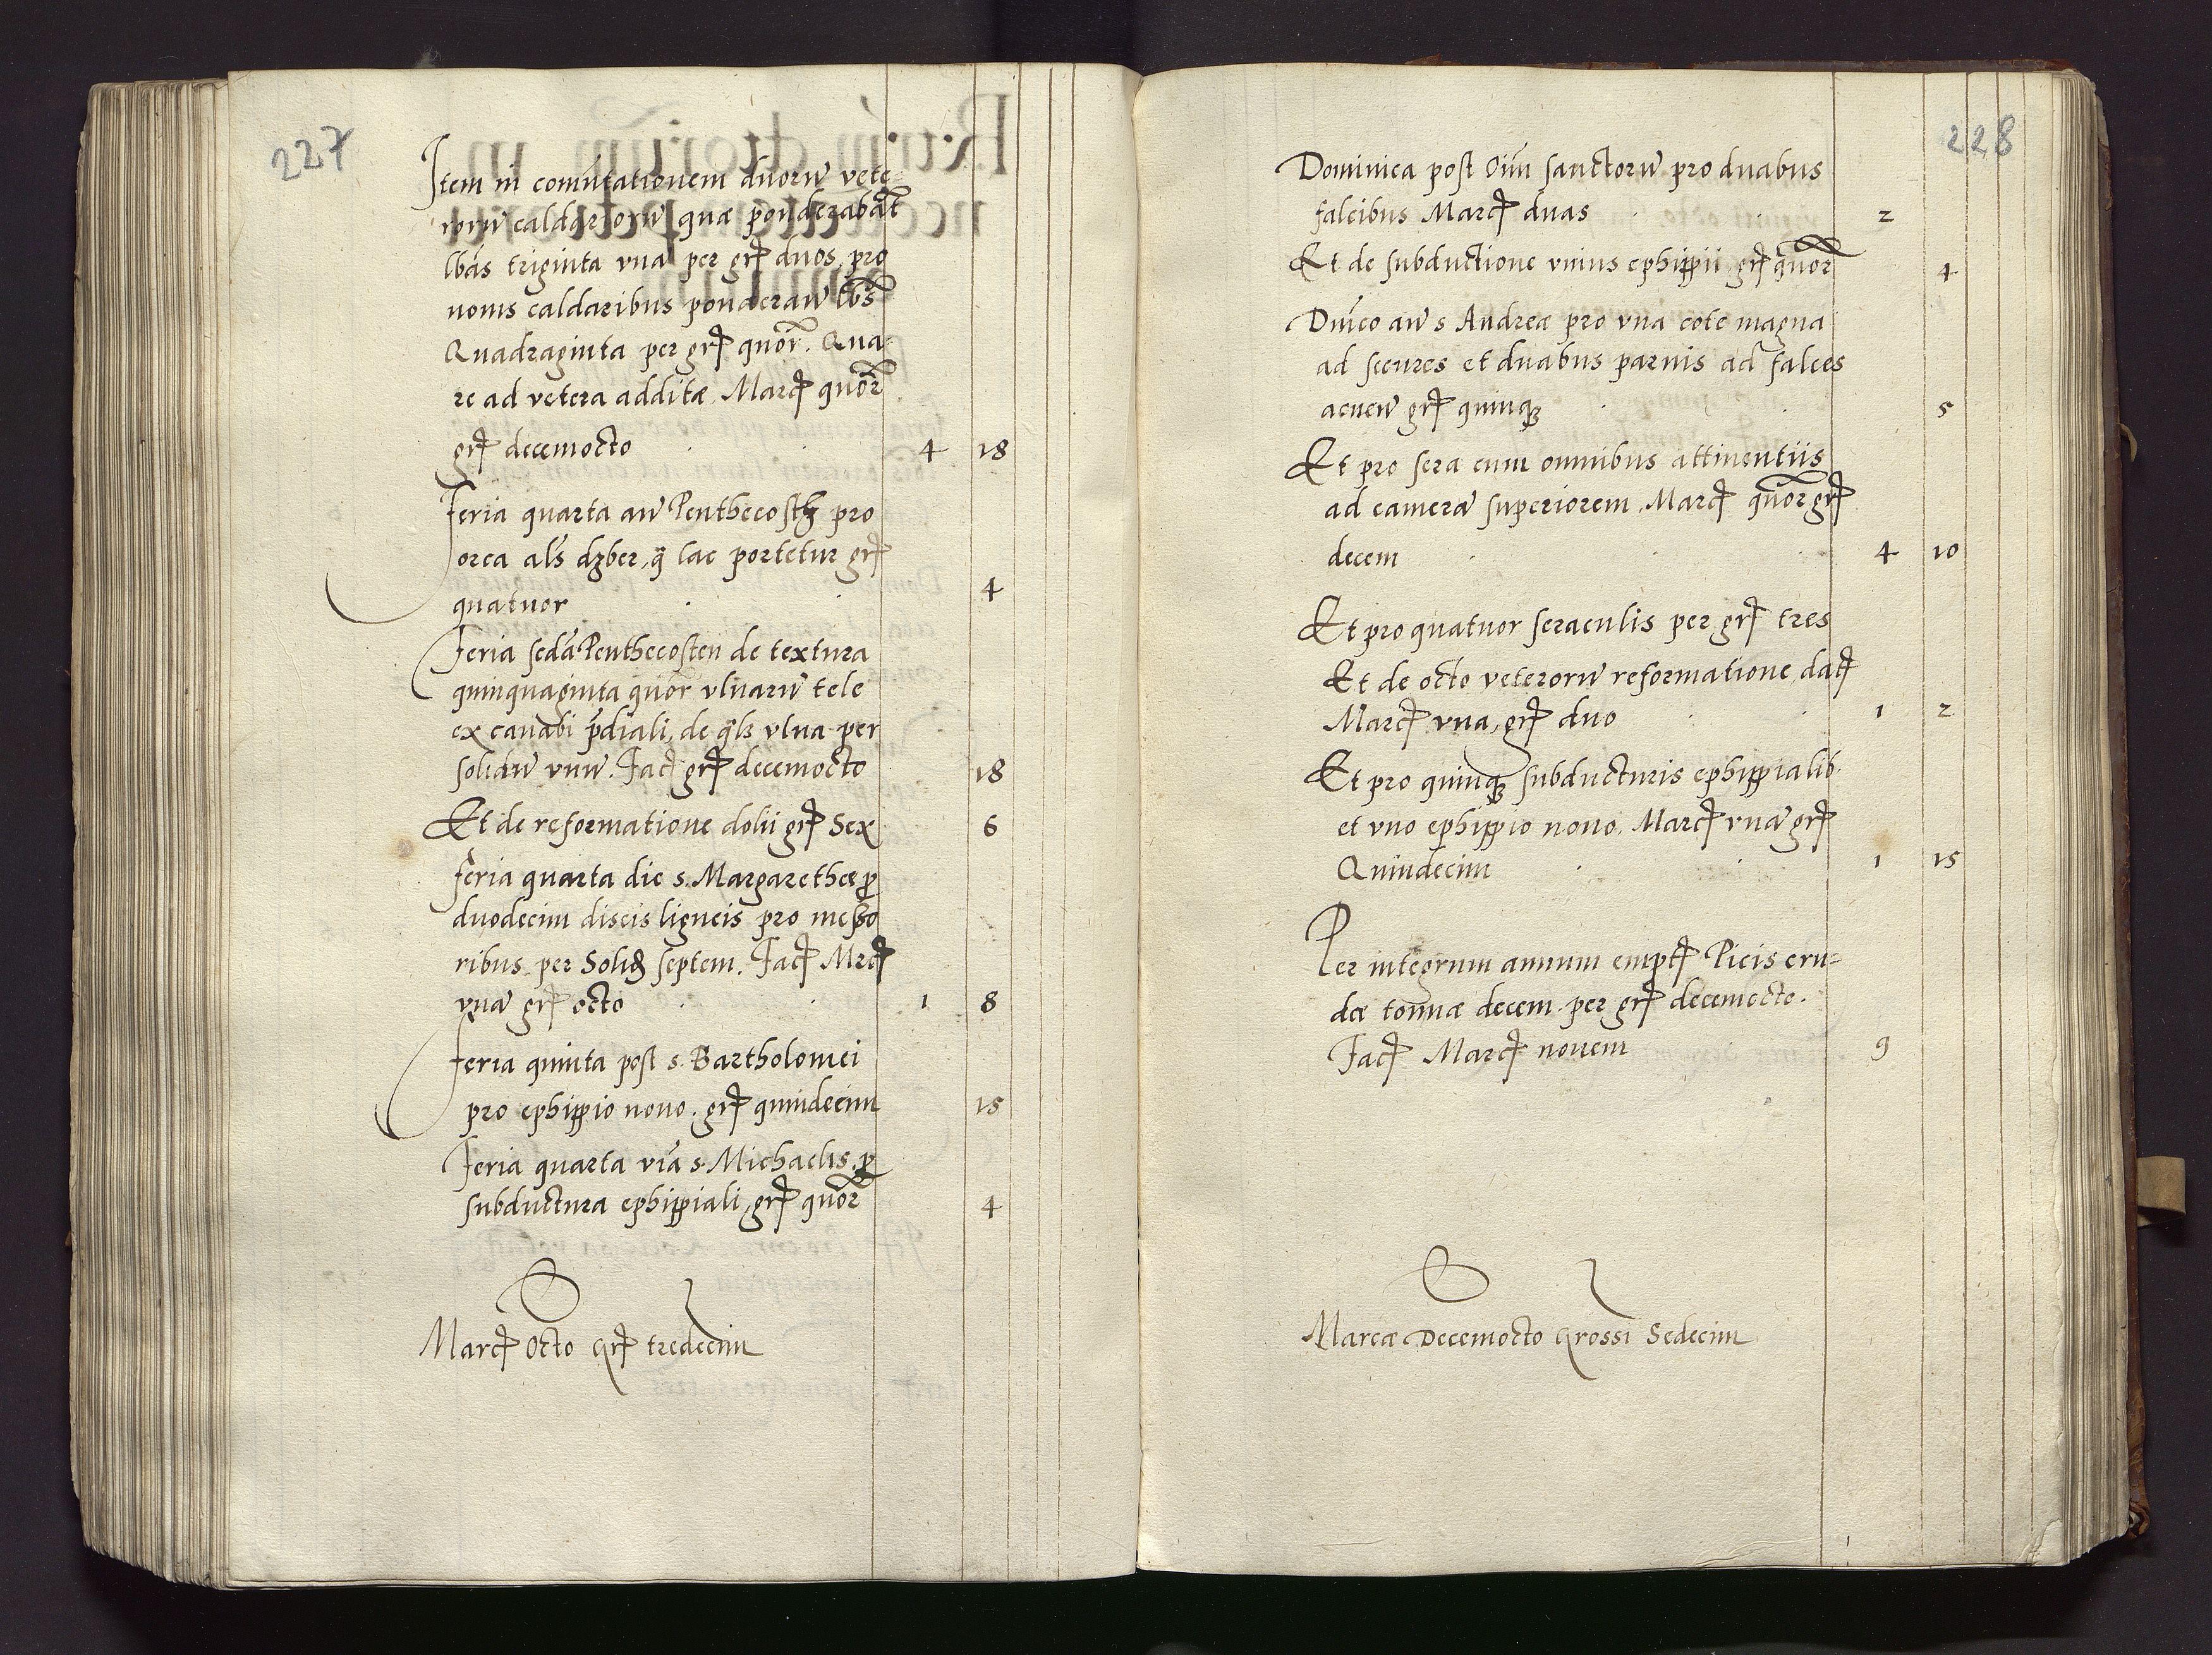 227
Item in comutationem duorum vete-
rorum caldariorum quae ponderabant
lbas triginta una per grꝭ duos, pro
nouis caldaribus ponderan lbs
Quadraginta per grꝭ quor. Qua-
re ad vetera additae Marcꝭ quor
grꝭ decemocto 4 18
Feria quarta an Penthecostꝭ pro
orca als dzber, q lac portetur grꝭ
quatuor 4
Feria seda Penthecosten de textura
quinquaginta quor vlnarum tele
ex canabi pdiali, de qlz vlna per
solidum vnum. Facꝭ grꝭ decemocto 18
Et de reformatione dolii grꝭ Sex 6
feria quarta die s. Margarethae p
duodecim discis ligneis pro messo
ribus per Solid septem. Facꝭ Mrcꝭ
vna grꝭ octo 1 8
Feria quinta post s. Bartholomei
pro ephippio nouo. grꝭ quindecim 15
Feria quarta via s. Michaelis. p
subductura ephippiali, grꝭ quor 4
S
Marcꝭ Octo Grꝭ tredecim
228
Dominica post Oim sanctorum pro duabus
falcibus Marcꝭ duas 2
Et de subductione vnius ephippii grꝭ quor 4
Dnico an s Andreae pro vna cote magna
ad secures et duabus paruis ad falces
acuen grꝭ quinqꝫ 5
Et pro sera cum omnibus attinentiis
ad camera superiorem, Marcꝭ quor grꝭ
decem 4 10
Et pro quatuor seraculis per grꝭ tres
Et de octo veterorum reformatione, datꝭ
Marcꝭ vna, grꝭ duo 1 2
Et pro quinqꝫ subducturis ephippialib.
et vno ephippio nouo. Marcꝭ vna grꝭ
Quindecim 1 15
Per integrum annum emptꝭ Picis cru-
dae tonnae decem per grꝭ decemocto.
Facꝭ Marcꝭ nouem 9
S
Marcae Decemocto Grossi Sedecim